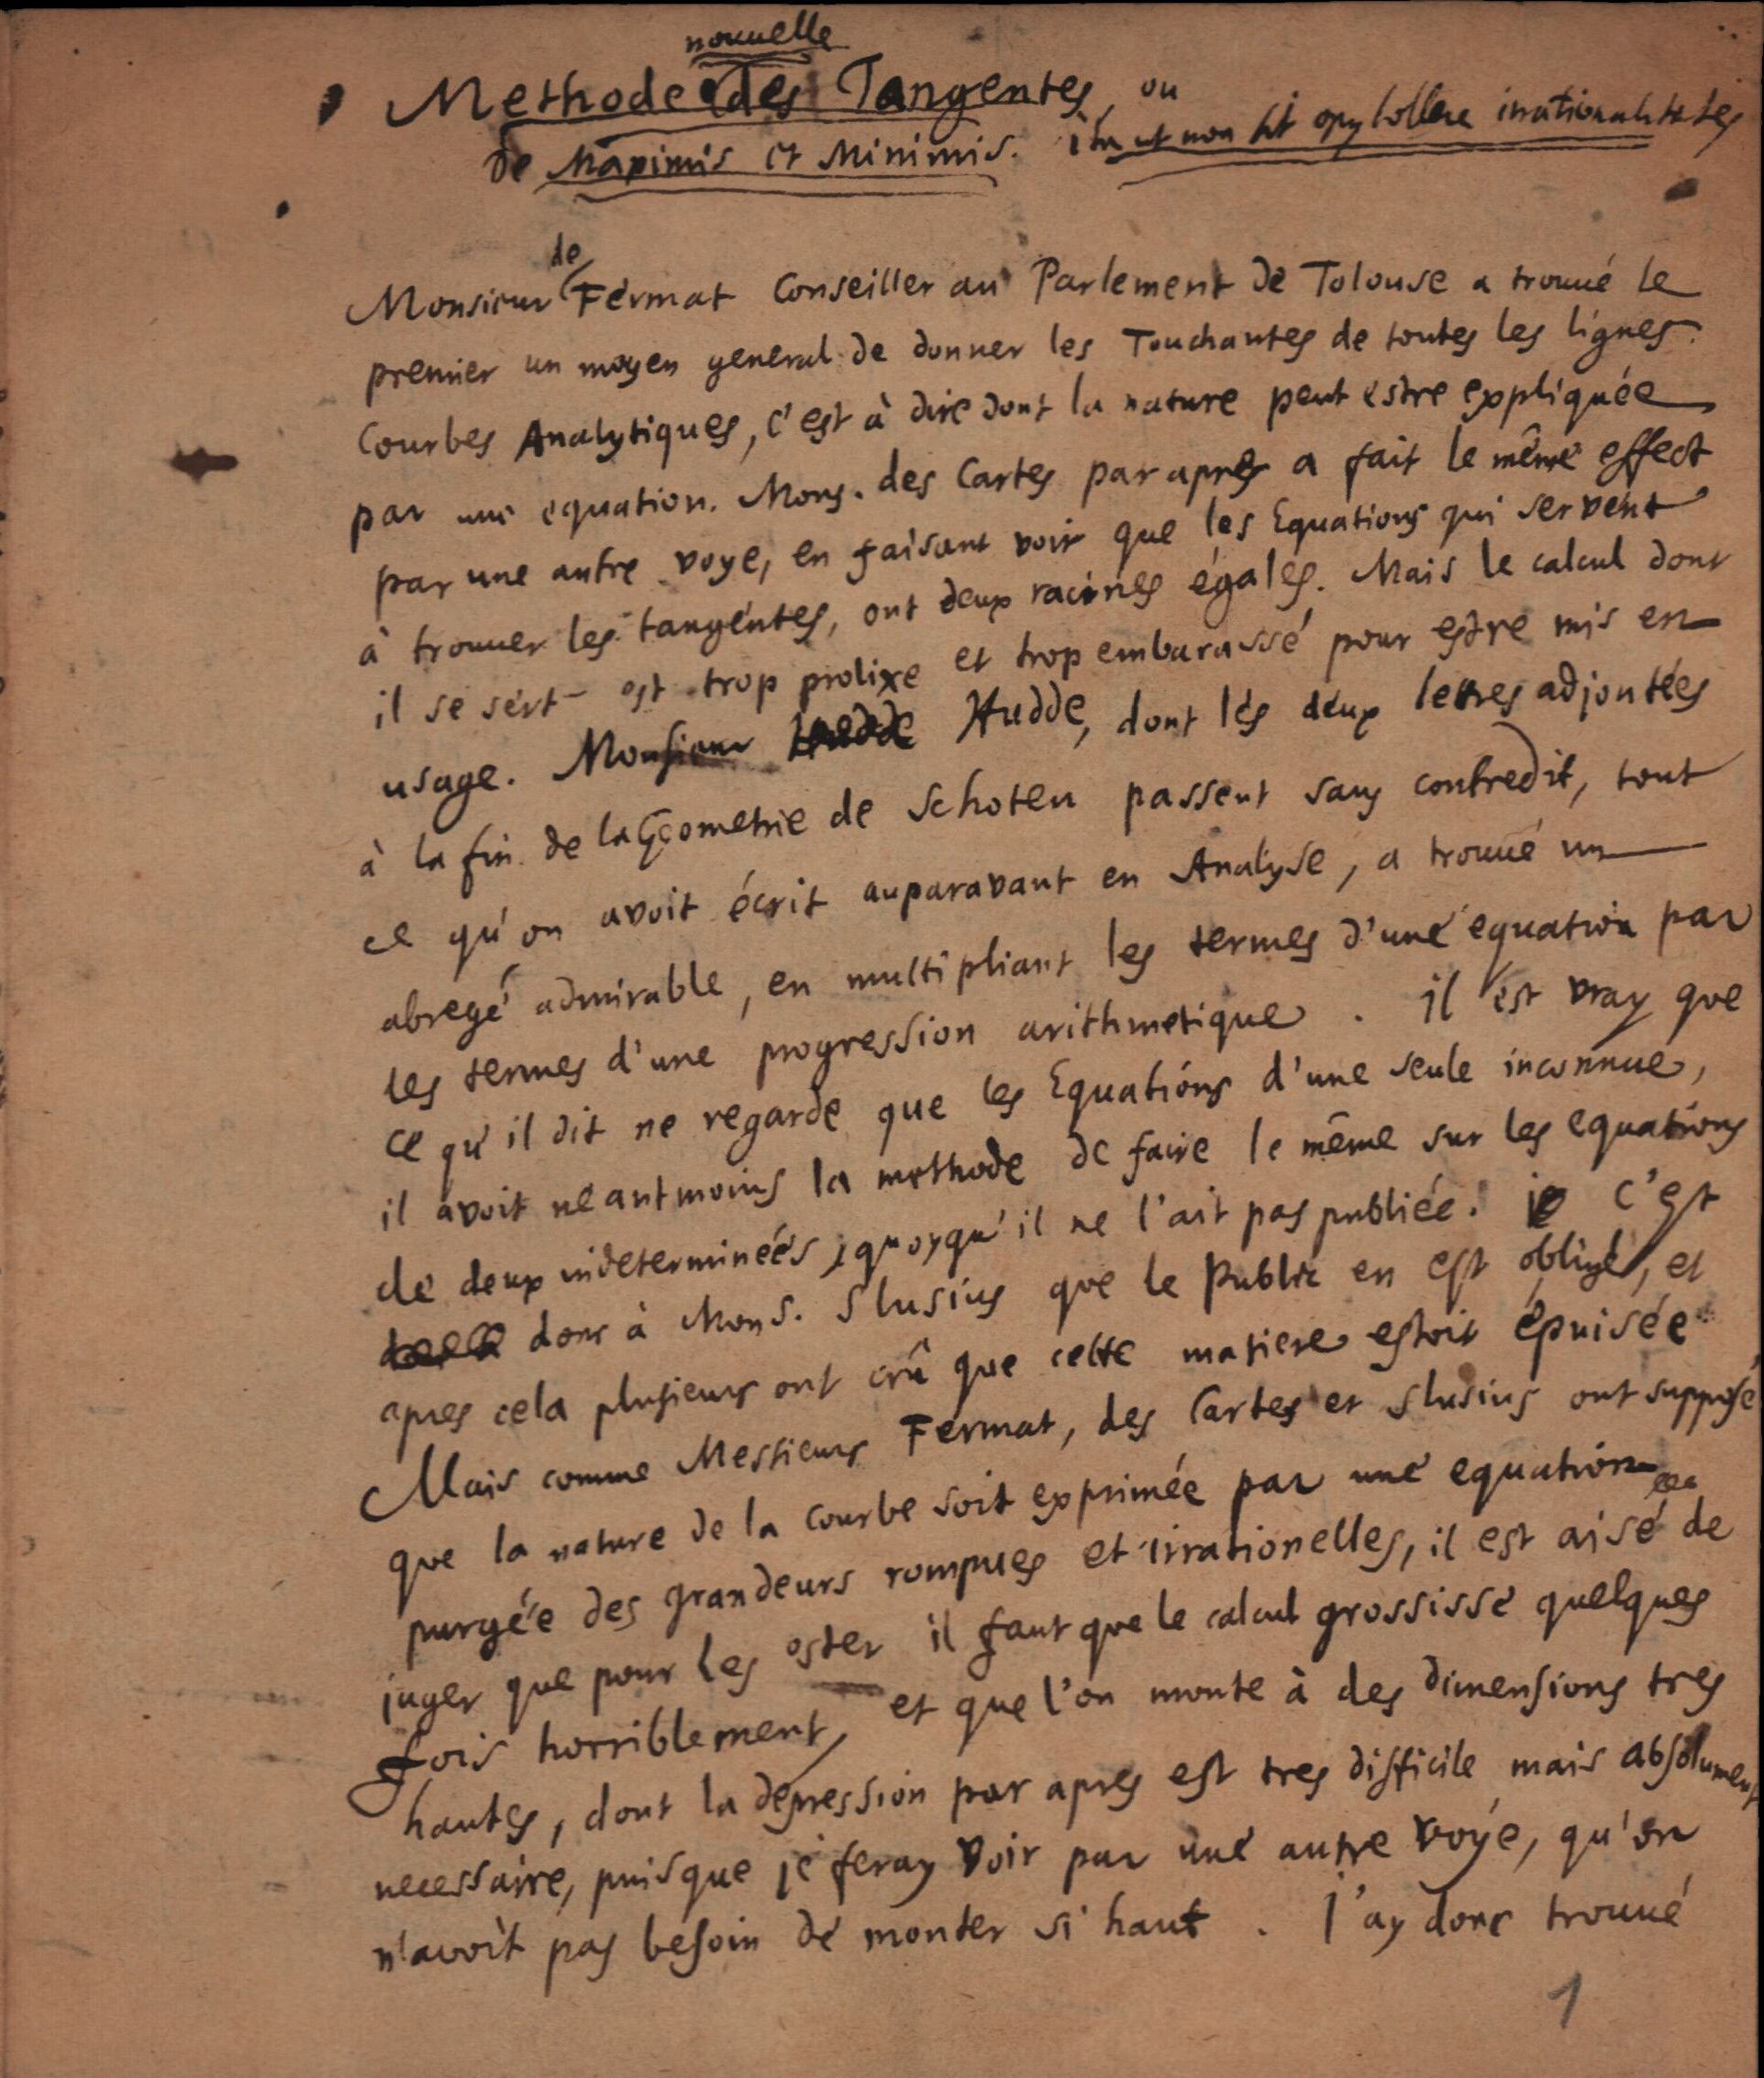 nouvelle
Methode des Tangentes, ou
de Maximis et Minimis. ita ut non sit opus tollere irrationalitates
de
Monsieur Fermat Conseiller au Parlement de Tolouse a trouué le
premier un moyen general de donner les Touchantes de toutes les lignes
Courbes Analytiques, c'est à dire dont la nature peut estre expliquée
par une equation. Mons. des Cartes par apres a fait le même effect
par une autre voye, en faisant voir que les Equations qui servent
à trouuer les tangentes, ont deux racines égales. Mais le calcul dont
il se sert est trop prolixe et trop embarassé pour estre mis en
usage. Monsieur Hudde, dont les deux lettres adjoutées
à la fin de la Geometrie de Schoten passent sans contredit, tout
ce qu'on avoit écrit auparavant en Analyse, a trouué un
abregé admirable, en multipliant les termes d'une equation par
les termes d'une progression arithmetique. il est vray que
ce qu'il dit ne regarde que les Equations d'une seule inconnue,
il avoit néantmoins la methode de faire le même sur les equations
de deux indeterminées, quoyqu'il ne l'ait pas publiée. C'est
donc à Mons. Slusius que le Public en est obligé, et
apres cela plusieurs ont crû que cette matiere estoit épuisée
Mais comme Messieurs Fermat, des Cartes et Slusius ont supposé,
que la nature de la courbe soit exprimée par une equation
purgée des grandeurs rompues et irrationelles, il est aisé de
juger que pour les oster il faut que le calcul grossisse quelques
fois horriblement, et que l'on monte à des dimensions tres
hautes, dont la depression par apres est tres difficile mais absolument
necessaire, puisque je feray voir par une autre voye, qu'on
n'avoit pas besoin de monter si haut. J'ay donc trouué
1